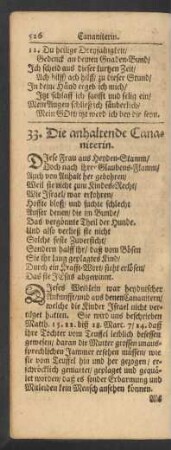 526 Cananiterin.
12. Du heilige Dreyfaltigkeit/
Gedenck an deinen Gnaden-Bund/
Ich scheid aus dieser kurtzen Zeit/
Ach hilff/ ach hilff/ zu dieser Stund/
In deine Händ ergeb ich mich/
Itzt schlaff ich sanfft und selig ein/
Mein Augen schließ ich säuberlich/
Mein GOtt itzt werd ich bey dir seyn.
33. Die anhaltende Cana-
niterin.
DJese Frau aus Heyden-Stamm/
Doch nach ihrer Glaubens-Flamm/
Auch von Anhalt her gebohren/
Weil sie nicht zum Kindes-Recht/
Wie Israel/ war erkohren/
Hoffte bloß/ und suchte schlecht
Ausser denen/ die im Bunde/
Das vergönnte Theil der Hunde.
Und also verließ sie nicht
Solche feste Zuversicht/
Sondern halff ihr/ daß vom Bösen
Sie ihr lang geplagtes Kind/
Durch ein Krafft-Wort sieht erlösen/
Das sie JESUS abgewinnt.
DJeses Weiblein war heydnischer
Ankunfft/ und aus denen Cananitern/
welche die Kinder Israel nicht ver-
tilget hatten. Sie wird uns beschrieben
Matth. 15. 21. biß 28. Marc. 7/24. daß
ihre Tochter vom Teuffel leiblich besessen
gewesen; daran die Mutter grossen unaus-
sprechlichen Jammer ersehen müssen/ wie
sie vom Teuffel hin und her gezogen/ er-
schröcklich gemartert/ geplaget und gequä-
let worden/ daß es sonder Erbarmung und
Mitleiden kein Mensch ansehen können.